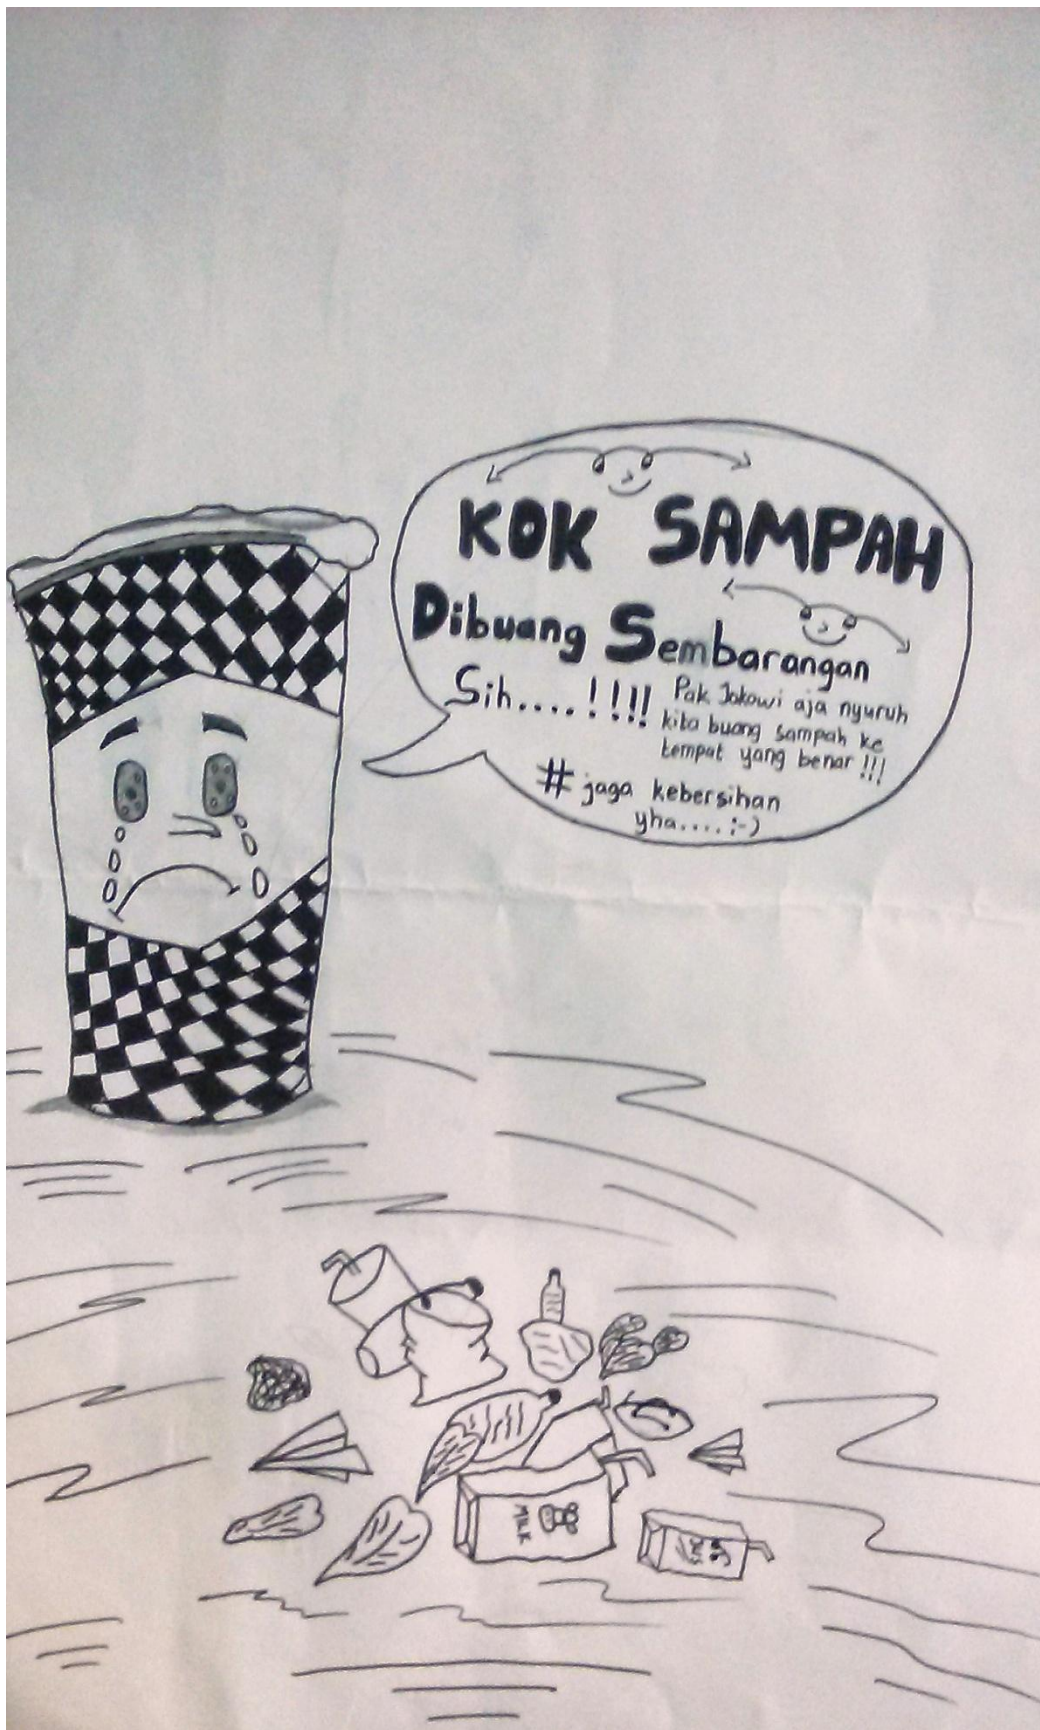 KOK SAMPAH
Dibuang Sembarangan
Sih....!!!!
Pak Jokowi aja nyuruh
kita buang sampah ke
tempat yang benar !!!
# jaga kebersihan
yha.... :-)
MILK